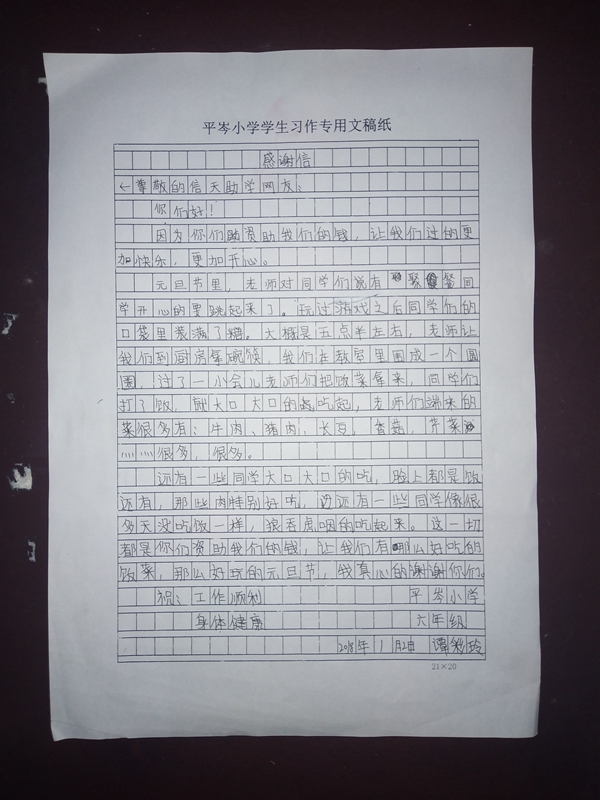 平岑小学学生习作专用文稿纸
感谢信
尊敬的信天助学网友:
你们好!
因为你们资助我们的钱,让我们过的更
加快乐,更加开心。
元旦节里,老师对同学们说有聚餐同
学开心的要跳起来了。玩过游戏之后同学们的
口袋里装满了糖。大概是五点半左右,老师让
我们到厨房拿碗筷,我们在教室里围成一个圆
圈,过了一小会儿老师们把饭菜拿来,同学们
打了饭,就大口大口的吃起,老师们端来的
菜很多有:牛肉、猪肉、长豆、香菇、芹菜
灬灬很多,很多。
还有一些同学大口大口的吃,脸上都是饭
还有,那些肉特别好吃,还有一些同学像很
多天没吃饭一样,狼吞虎咽的吃起来。这一切
都是你们资助我们的钱,让我们有那么好吃的
饭菜,那么好玩的元旦节,我真心的谢谢你们。
祝:工作顺利 平岑小学
身体健康 六年级
2018年1月2日 谭秋玲
21×20